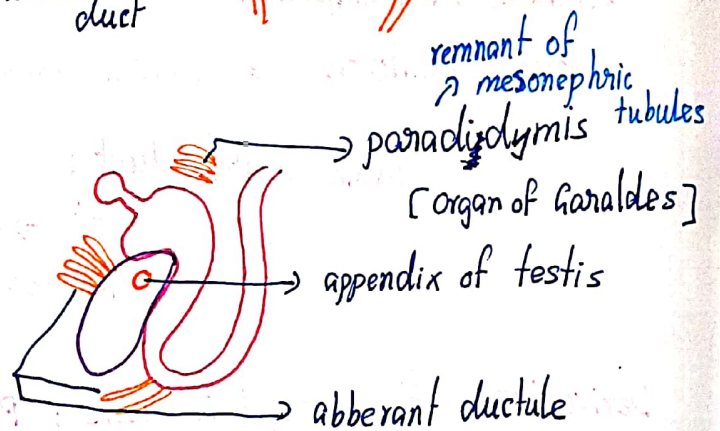 duct
remnant of
mesonephric
tubules
paradidymis
[organ of Garaldes]
appendix of testis
abberant ductule